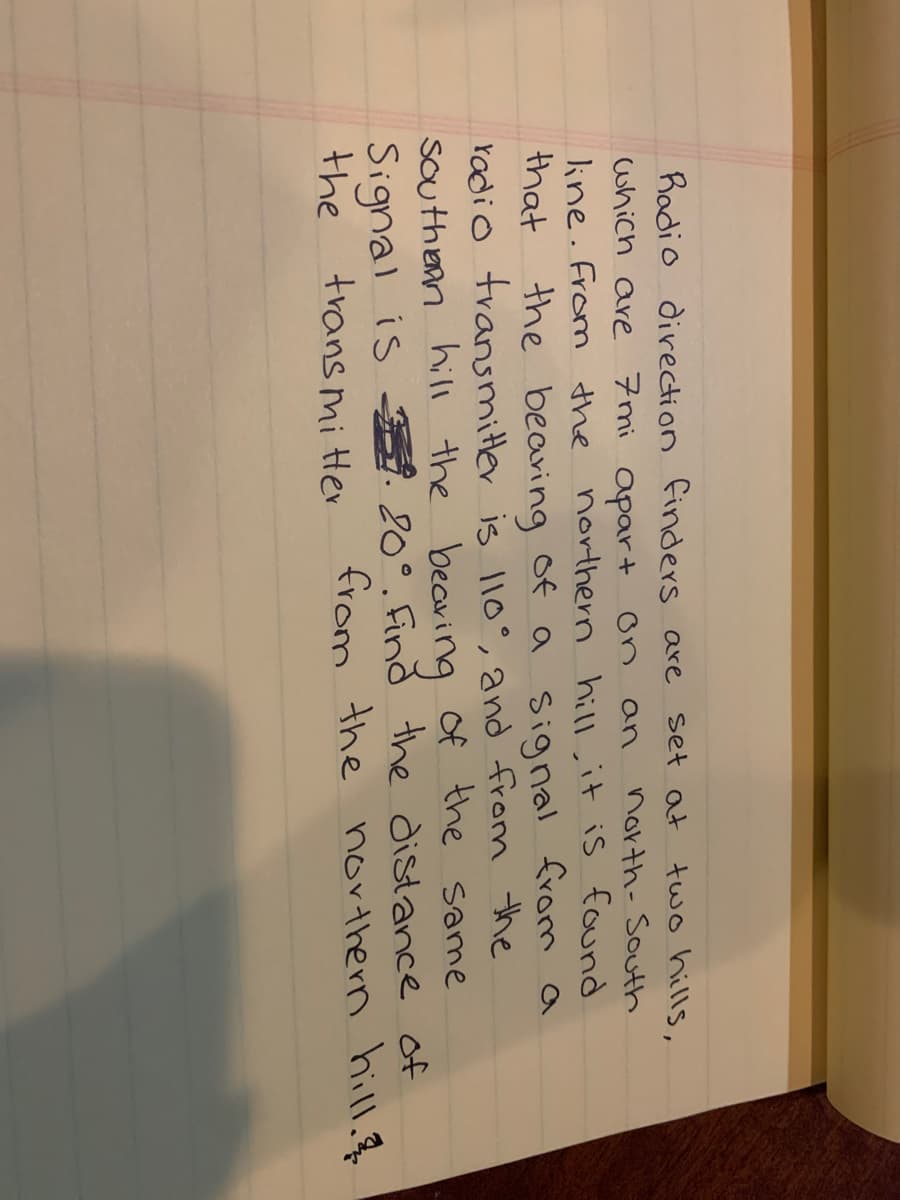 Radio direction finders are set at two hills,
which are 7mi apart on an north-South
line. From the northern hill, it is found
that the bearing of a signal from a
radio transmitter is 110°, and from the
southern hill the bearing of the same
Signal is 20°. Find the distance of
the transmitter from the northern hill.